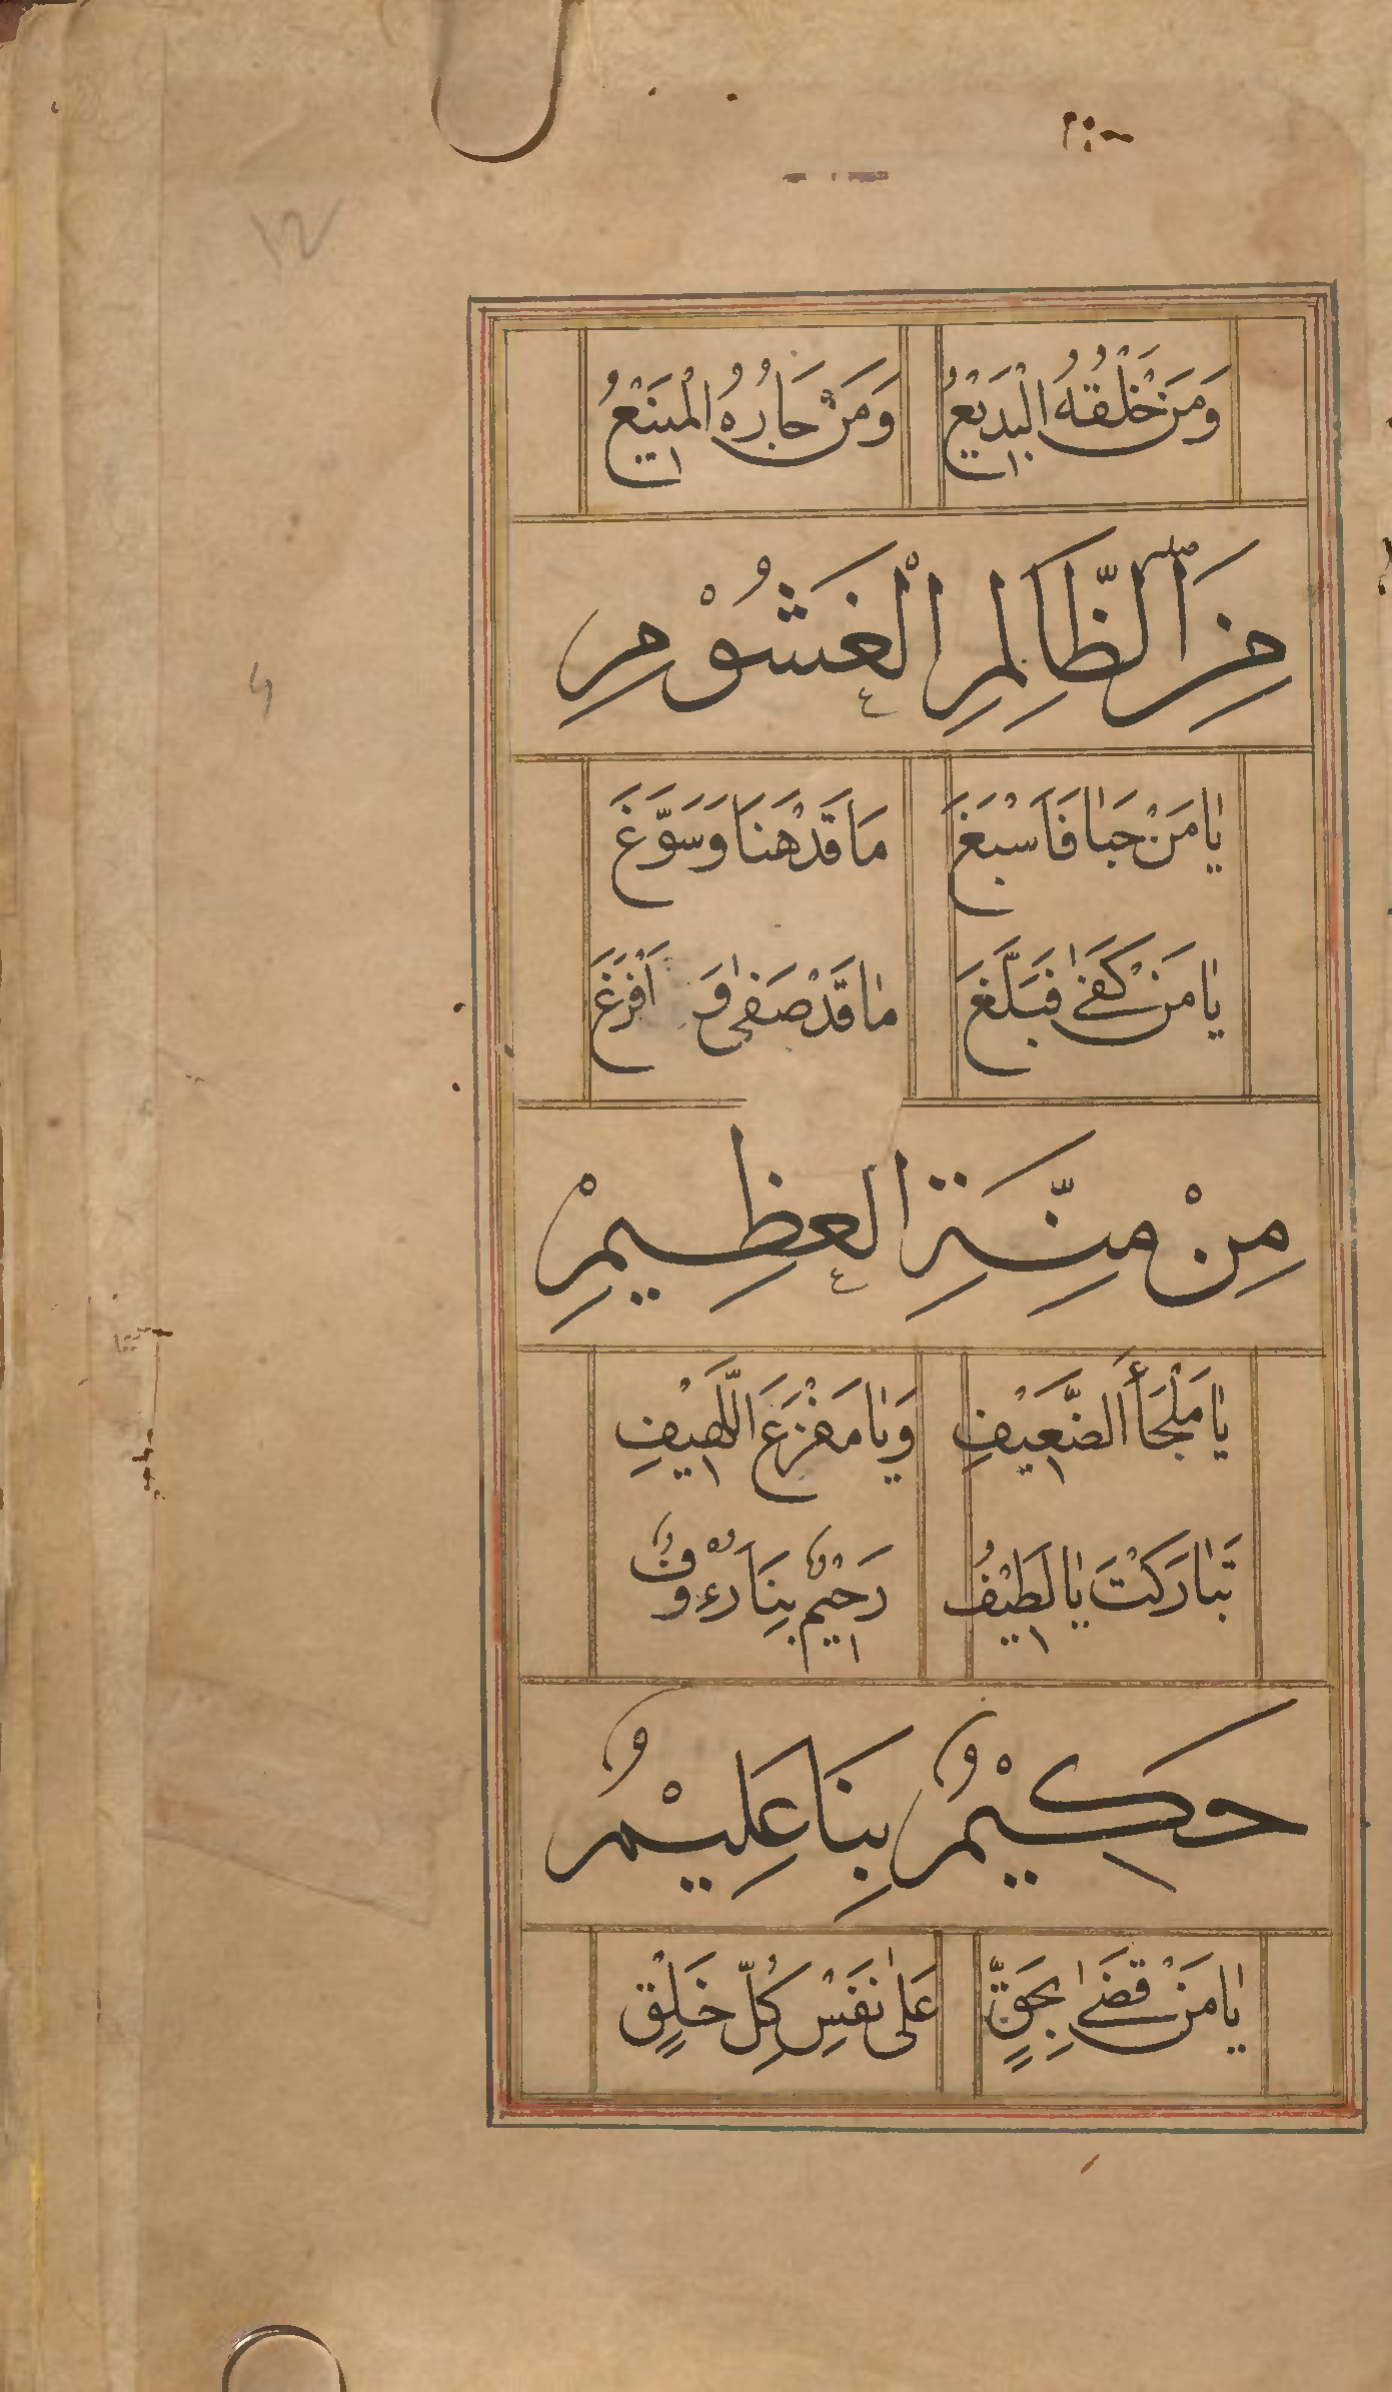 ١٢
وَمَنْ خَلْقُهُ الْبَدِيْعُ وَمَنْ جَارُهُ الْمَنِيْعُ
مِنَ الظَّالِمِ الْغَشُوْمِ
يٰا مَنْ حَبٰا فَاَسْبَغَ مَا قَدْ هَنَا وَسَوَّغَ
يٰا مَنْ كَفٰى فَبَلَّغَ مٰا قَدْ صَفٰى وَ اَفْرَغَ
مِنْ مِنَّةِ العَظِيمِ
يٰا مَلْجَأَ الضَّعِيْفِ وَيٰا مَفْزَعَ اللَّهِيْفِ
تَبٰارَكْتَ يٰا لَطِيْفُ رَحِيْمٌ بِنَا رَءُوْفٌ
حَكِيْمٌ بِنَا عَلِيْمٌ
يٰا مَنْ قَضٰى بِحَقٍّ عَلٰى نَفْسِ كُلِّ خَلْقٍ